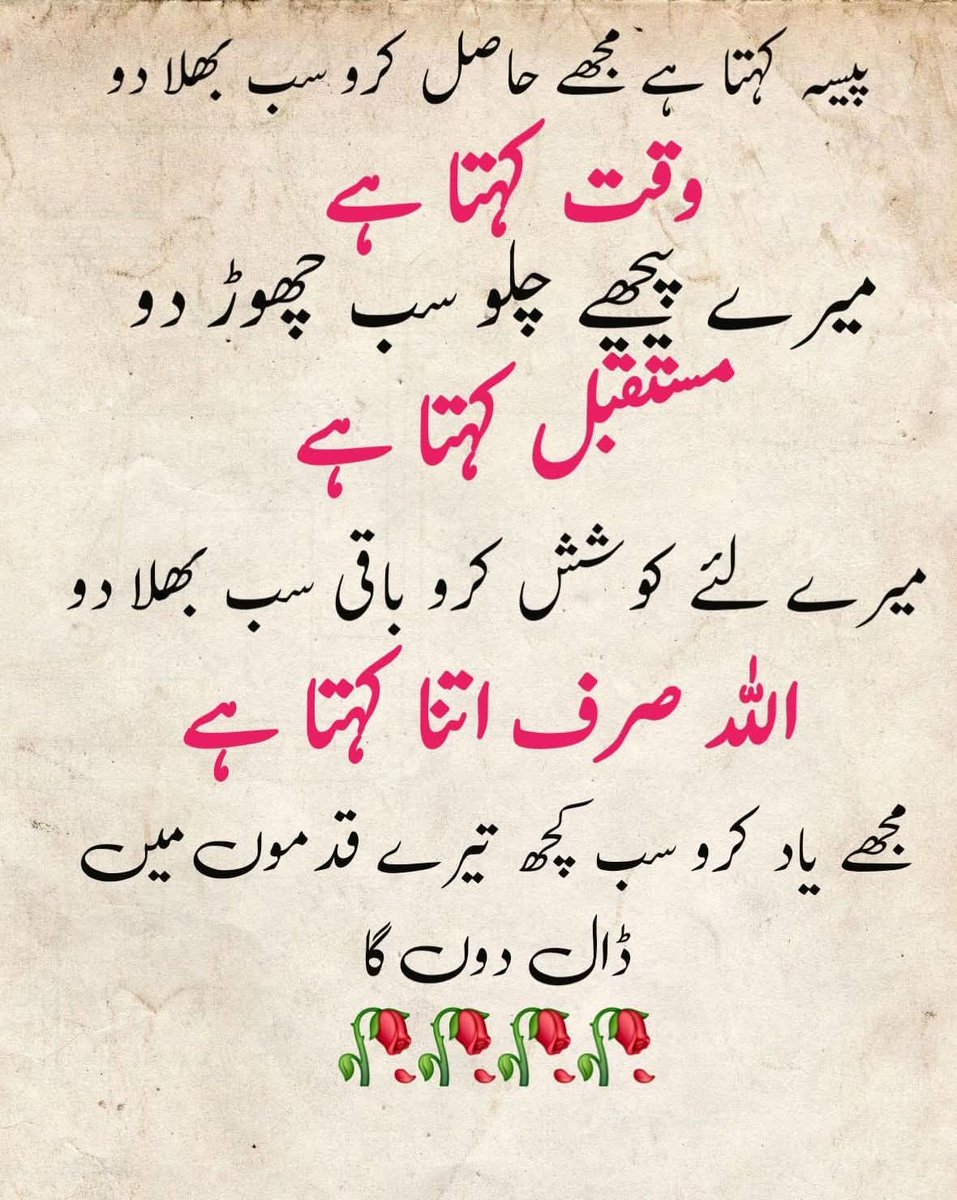 پیسہ کہتا ہے مجھے حاصل کرو سب بھلا دو
وقت کہتا ہے
میرے پیچھے چلو سب چھوڑ دو
مستقبل کہتا ہے
میرے لئے کوشش کرو باقی سب بھلا دو
اللہ صرف اتنا کہتا ہے
مجھے یاد کرو سب کچھ تیرے قدموں میں
ڈال دوں گا
🥀🥀🥀🥀